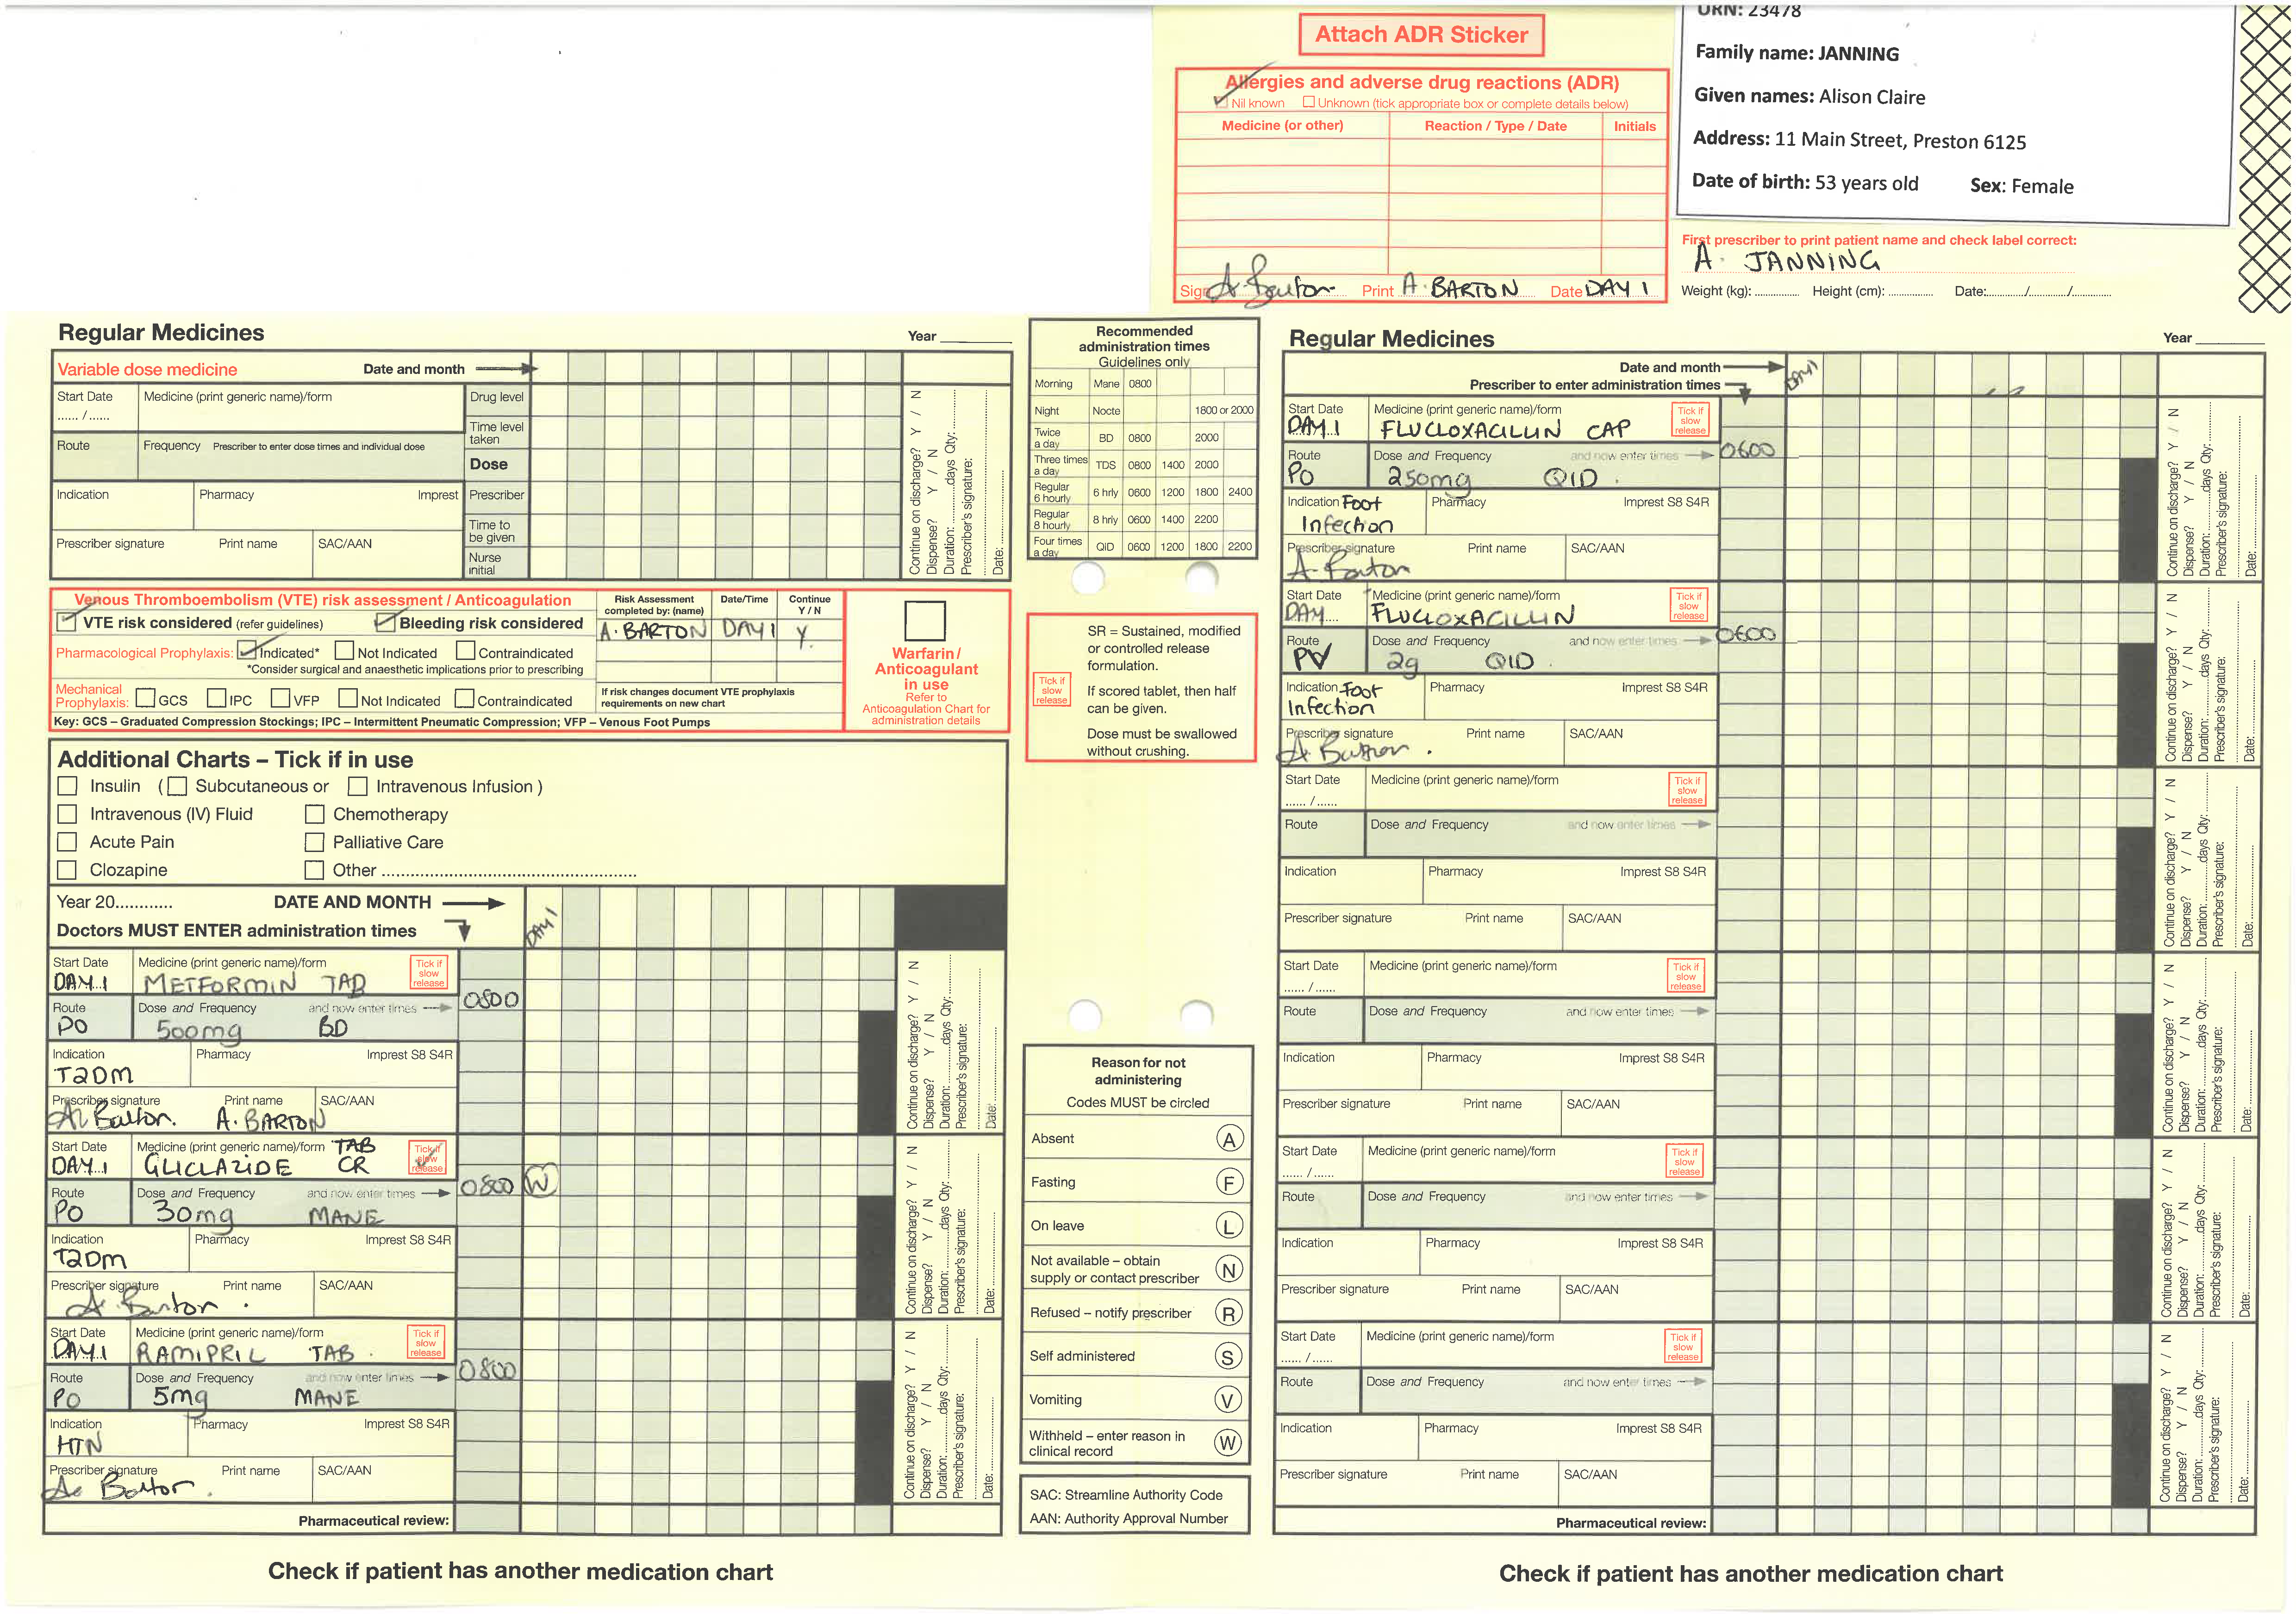 Attach ADR Sticker
Allergies and adverse drug reactions (ADR)
Nil known Unknown (tick appropriate box or complete details below)
Medicine (or other) Reaction / Type / Date Initials
Sign A. Barton Print A. BARTON Date DAY 1
URN: 23478
Family name: JANNING
Given names: Alison Claire
Address: 11 Main Street, Preston 6125
Date of birth: 53 years old Sex: Female
First prescriber to print patient name and check label correct:
A. JANNING
Weight (kg): Height (cm): Date: / /
Regular Medicines Year
Variable dose medicine Date and month
Start Date Medicine (print generic name)/form Drug level
...... / ......
Time level taken
Route Frequency Prescriber to enter dose times and individual dose
Dose
Indication Pharmacy Imprest Prescriber
Time to be given
Prescriber signature Print name SAC/AAN
Nurse initial
Continue on discharge? Y / N
Dispense? Y / N
Duration: days Qty:
Prescriber's signature:
Date:
Venous Thromboembolism (VTE) risk assessment / Anticoagulation
VTE risk considered (refer guidelines) Bleeding risk considered
Pharmacological Prophylaxis: Indicated* Not Indicated Contraindicated
*Consider surgical and anaesthetic implications prior to prescribing
Mechanical Prophylaxis: GCS IPC VFP Not Indicated Contraindicated
Key: GCS – Graduated Compression Stockings; IPC – Intermittent Pneumatic Compression; VFP – Venous Foot Pumps
Risk Assessment completed by: (name) Date/Time Continue Y / N
A. BARTON DAY 1 Y.
If risk changes document VTE prophylaxis requirements on new chart
Warfarin / Anticoagulant in use
Refer to Anticoagulation Chart for administration details
Additional Charts – Tick if in use
Insulin ( Subcutaneous or Intravenous Infusion )
Intravenous (IV) Fluid Chemotherapy
Acute Pain Palliative Care
Clozapine Other
Year 20 DATE AND MONTH DAY 1
Doctors MUST ENTER administration times
Start Date Medicine (print generic name)/form Tick if slow release
DAY 1 METFORMIN TAB
Route Dose and Frequency and now enter times 0800
PO 500mg BD
Indication Pharmacy Imprest S8 S4R
T2DM
Prescriber signature Print name SAC/AAN
A. Barton. A. BARTON
Continue on discharge? Y / N
Dispense? Y / N
Duration: days Qty:
Prescriber's signature:
Date:
Start Date Medicine (print generic name)/form TAB Tick if slow release
DAY 1 GLICLAZIDE CR
Route Dose and Frequency and now enter times 0800 W
PO 30mg MANE
Indication Pharmacy Imprest S8 S4R
T2DM
Prescriber signature Print name SAC/AAN
A. Barton.
Continue on discharge? Y / N
Dispense? Y / N
Duration: days Qty:
Prescriber's signature:
Date:
Start Date Medicine (print generic name)/form Tick if slow release
DAY 1 RAMIPRIL TAB.
Route Dose and Frequency and now enter times 0800
PO 5mg MANE
Indication Pharmacy Imprest S8 S4R
HTN
Prescriber signature Print name SAC/AAN
A. Barton.
Continue on discharge? Y / N
Dispense? Y / N
Duration: days Qty:
Prescriber's signature:
Date:
Pharmaceutical review:
Check if patient has another medication chart
Recommended administration times
Guidelines only
Morning Mane 0800
Night Nocte 1800 or 2000
Twice a day BD 0800 2000
Three times a day TDS 0800 1400 2000
Regular 6 hourly 6 hrly 0600 1200 1800 2400
Regular 8 hourly 8 hrly 0600 1400 2200
Four times a day QID 0600 1200 1800 2200
Tick if slow release
SR = Sustained, modified or controlled release formulation.
If scored tablet, then half can be given.
Dose must be swallowed without crushing.
Reason for not administering
Codes MUST be circled
Absent A
Fasting F
On leave L
Not available – obtain supply or contact prescriber N
Refused – notify prescriber R
Self administered S
Vomiting V
Withheld – enter reason in clinical record W
SAC: Streamline Authority Code
AAN: Authority Approval Number
Regular Medicines Year
Date and month DAY 1
Prescriber to enter administration times
Start Date Medicine (print generic name)/form Tick if slow release
DAY 1 FLUCLOXACILLIN CAP
Route Dose and Frequency and now enter times 0600
PO 250mg QID.
Indication Foot Pharmacy Imprest S8 S4R
Infection
Prescriber signature Print name SAC/AAN
A. Barton
Continue on discharge? Y / N
Dispense? Y / N
Duration: days Qty:
Prescriber's signature:
Date:
Start Date Medicine (print generic name)/form Tick if slow release
DAY FLUCLOXACILLIN
Route Dose and Frequency and now enter times 0600
2g QID.
Indication Foot Pharmacy Imprest S8 S4R
Infection
Prescriber signature Print name SAC/AAN
A. Barton.
Continue on discharge? Y / N
Dispense? Y / N
Duration: days Qty:
Prescriber's signature:
Date:
Start Date Medicine (print generic name)/form Tick if slow release
...... / ......
Route Dose and Frequency and now enter times
Indication Pharmacy Imprest S8 S4R
Prescriber signature Print name SAC/AAN
Continue on discharge? Y / N
Dispense? Y / N
Duration: days Qty:
Prescriber's signature:
Date:
Start Date Medicine (print generic name)/form Tick if slow release
...... / ......
Route Dose and Frequency and now enter times
Indication Pharmacy Imprest S8 S4R
Prescriber signature Print name SAC/AAN
Continue on discharge? Y / N
Dispense? Y / N
Duration: days Qty:
Prescriber's signature:
Date:
Start Date Medicine (print generic name)/form Tick if slow release
...... / ......
Route Dose and Frequency and now enter times
Indication Pharmacy Imprest S8 S4R
Prescriber signature Print name SAC/AAN
Continue on discharge? Y / N
Dispense? Y / N
Duration: days Qty:
Prescriber's signature:
Date:
Start Date Medicine (print generic name)/form Tick if slow release
...... / ......
Route Dose and Frequency and now enter times
Indication Pharmacy Imprest S8 S4R
Prescriber signature Print name SAC/AAN
Continue on discharge? Y / N
Dispense? Y / N
Duration: days Qty:
Prescriber's signature:
Date:
Pharmaceutical review:
Check if patient has another medication chart